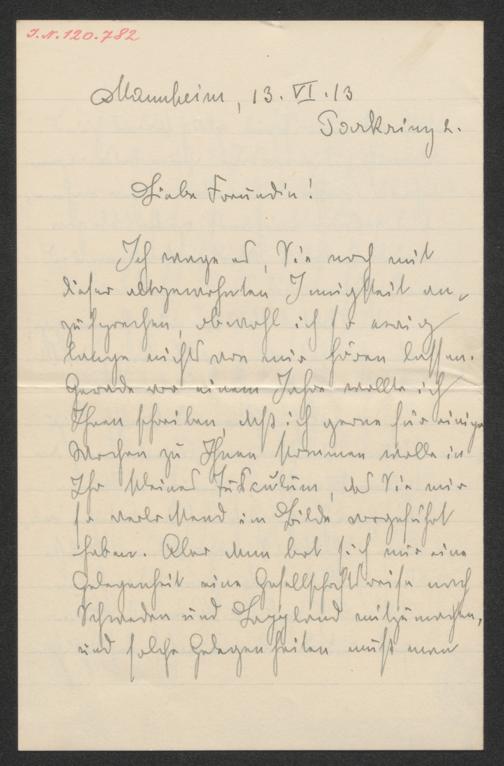 J.N. 120.782
Mannheim, 13. VI. 13
Parkring 2.
Liebe Freundin!
Ich wage es, Sie noch mit
dieser altgewohnten Innigkeit an-
zusprechen, obwohl ich so ewig
lange nichts von mir hören lassen.
Gerade vor einem Jahre wollte ich
Ihnen schreiben, daß ich gerne für einige
Wochen zu Ihnen kommen wolle in
Ihr kleines Tuskulum, das Sie mir
so verlockend im Bilde vorgeführt
haben. Aber dann bot sich mir eine
Gelegenheit eine Gesellschaftsreise nach
Schweden und Lappland mitzumachen,
und solche Gelegenheiten muß man